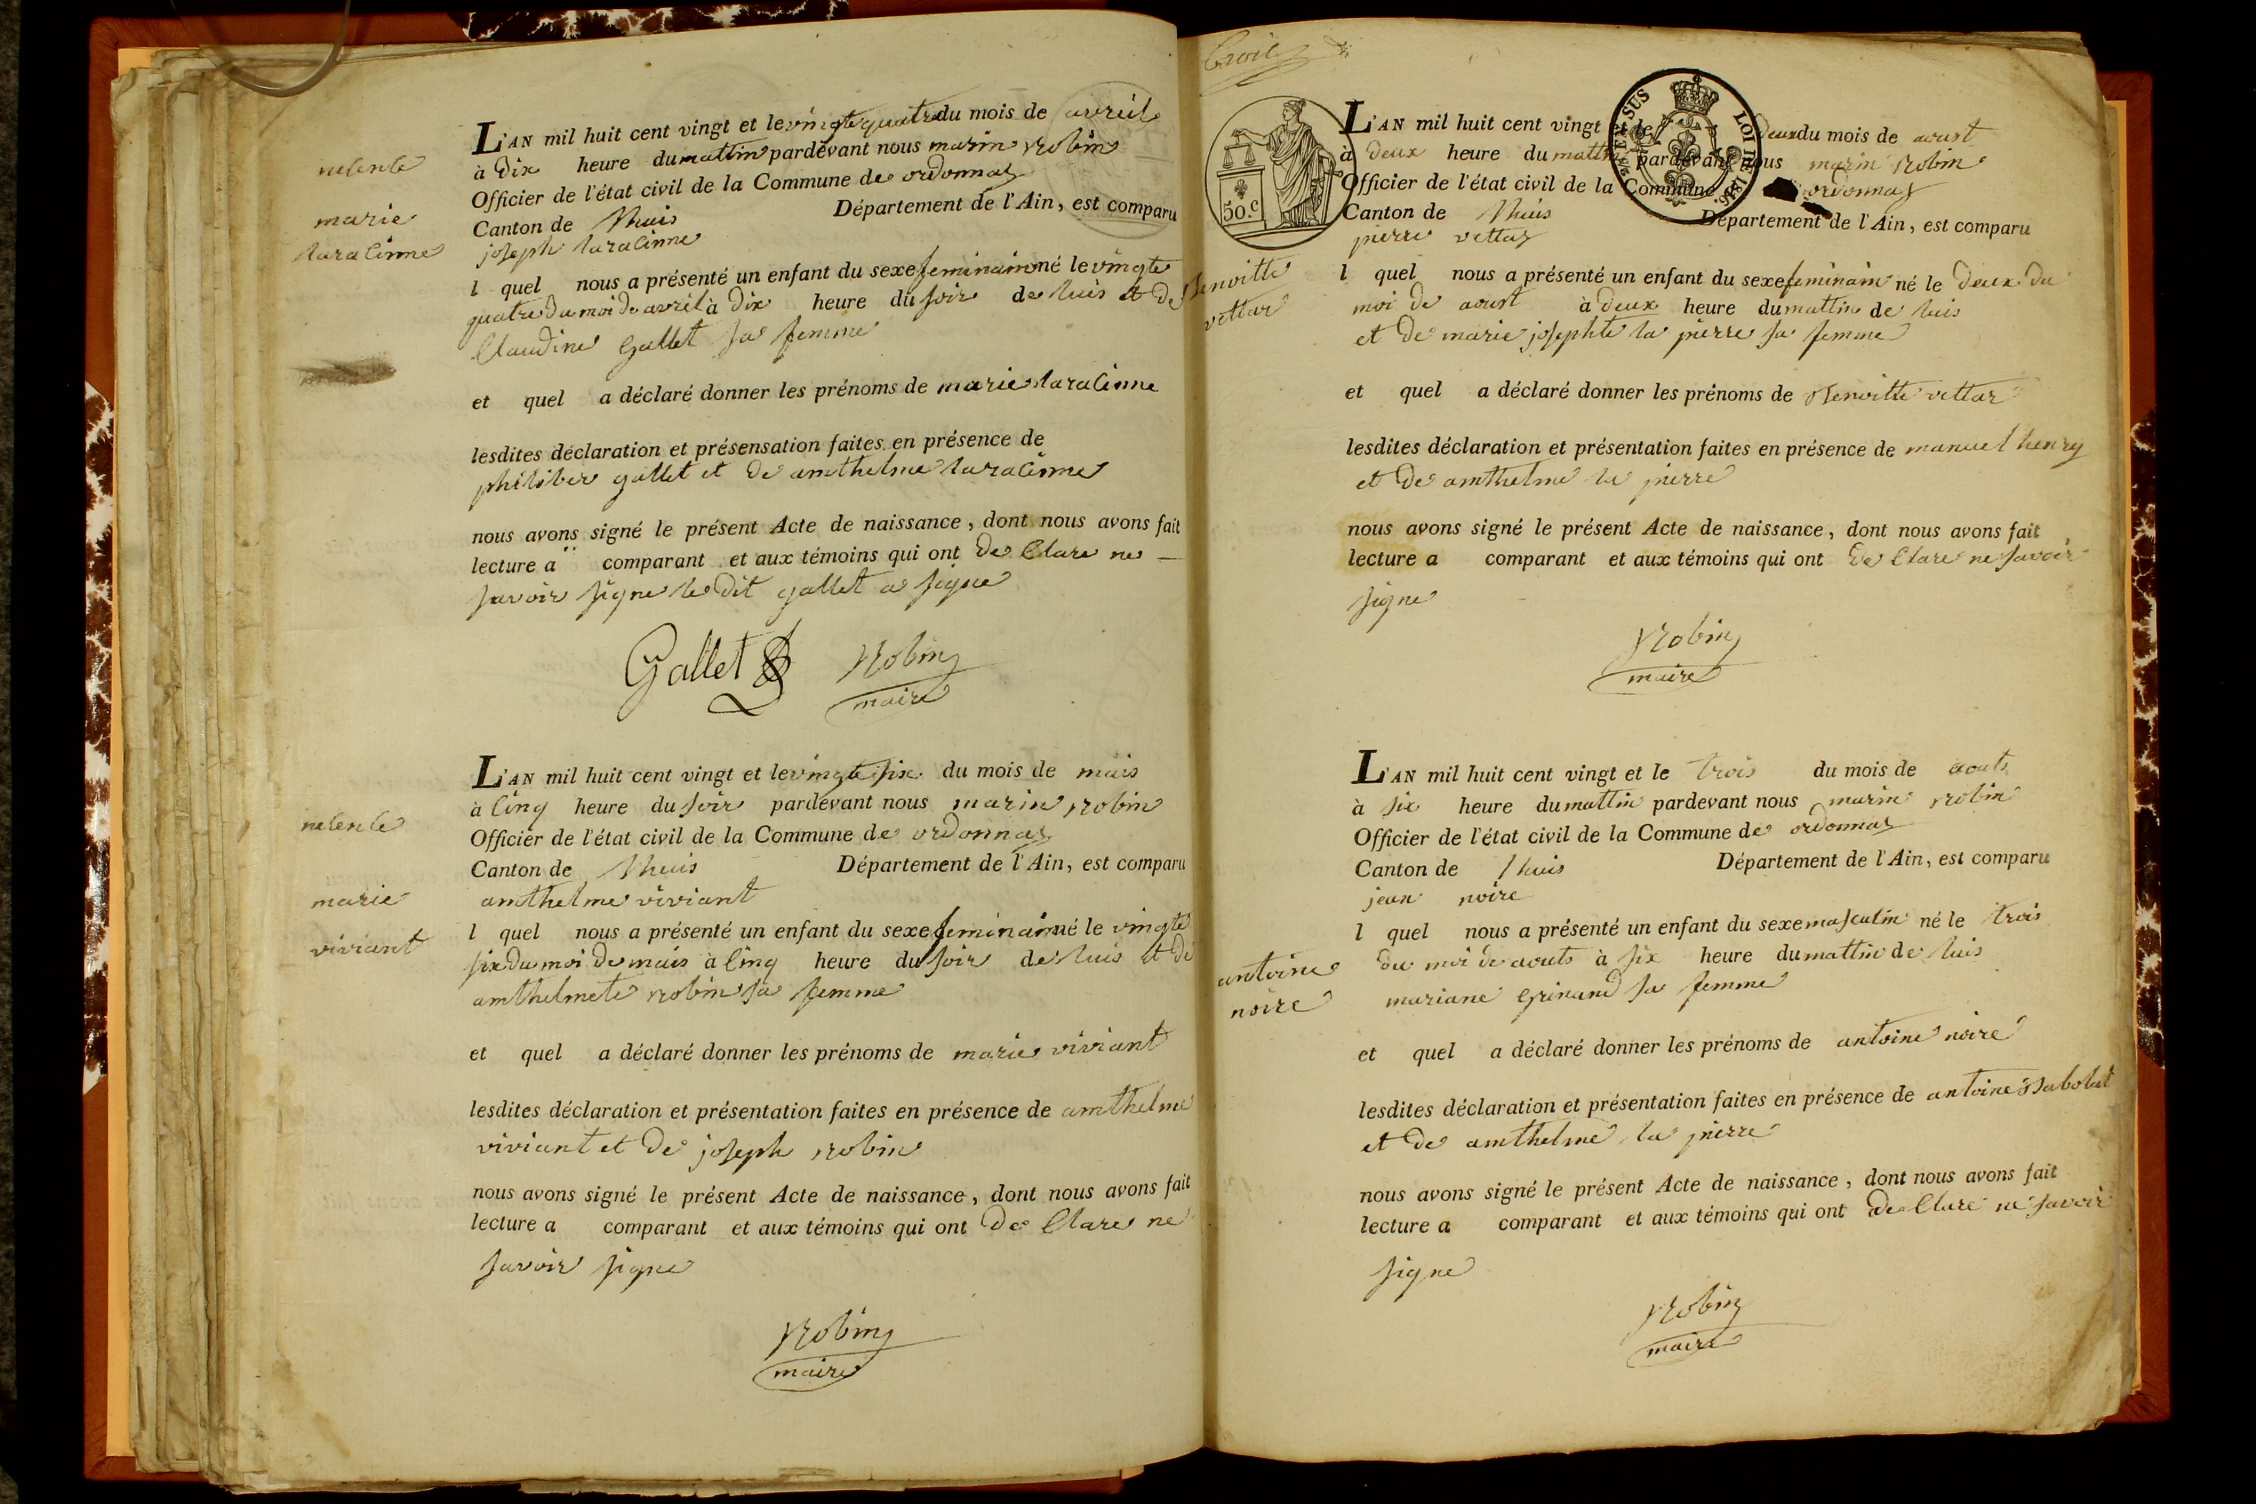 marie
taracinne
L'AN mil huit cent vingt et le vingte quatre du mois de avril
à dix heure du mattin pardevant nous marin robin
Officier de l'état civil de la Commune de ordonnaz
Canton de lhuis Département de l'Ain, est comparu
joseph taracinne
l quel nous a présenté un enfant du sexe feminain né le vingte
quatre du moi de avril à dix heure du soir de luis et de
Claudine gallet sa femme
et quel a déclaré donner les prénoms de marie taracinne
lesdites déclaration et présensation faites en présence de
philiber gallet et de amthelme taracinne
nous avons signé le présent Acte de naissance, dont nous avons fait
lecture a comparant et aux témoins qui ont de Clare ne
savoir signe le dit gallet a signe
Gallet Robin
maire
marie
viviant
L'AN mil huit cent vingt et le vingte six du mois de mais
à cinq heure du soir pardevant nous marin robin
Officier de l'état civil de la Commune de ordonnaz
Canton de lhuis Département de l'Ain, est comparu
amthelme viviant
l quel nous a présenté un enfant du sexe feminain né le vingte
six du moi de mais à cinq heure du soir de luis et de
amthelmete robin sa femme
et quel a déclaré donner les prénoms de marie viviant
lesdites déclaration et présentation faites en présence de amthelme
viviant et de joseph robin
nous avons signé le présent Acte de naissance, dont nous avons fait
lecture a comparant et aux témoins qui ont de Clare ne
savoir signe
Robin
maire
50.c
EN SUS LOI DE 1816.
vettaz
L'AN mil huit cent vingt et le deux du mois de aoust
à deux heure du mattin pardevant nous marin robin
Officier de l'état civil de la Commune ordonnaz
Canton de lhuis Département de l'Ain, est comparu
pierre vettaz
l quel nous a présenté un enfant du sexe feminain né le deux du
moi de aoust à deux heure du mattin de luis
et de marie josephte la pierre sa femme
et quel a déclaré donner les prénoms de vettaz
lesdites déclaration et présentation faites en présence de manuel henry
et de amthelme la pierre
nous avons signé le présent Acte de naissance, dont nous avons fait
lecture a comparant et aux témoins qui ont de Clare ne savoir
signe
Robin
maire
antoine
noire
L'AN mil huit cent vingt et le trois du mois de aouts
à six heure du mattin pardevant nous marin robin
Officier de l'état civil de la Commune de ordonnaz
Canton de lhuis Département de l'Ain, est comparu
jean noire
l quel nous a présenté un enfant du sexe masculin né le trois
du moi de aouts à six heure du mattin de luis
mariane grinand sa femme
et quel a déclaré donner les prénoms de antoine noire
lesdites déclaration et présentation faites en présence de antoine
et de amthelme la pierre
nous avons signé le présent Acte de naissance, dont nous avons fait
lecture a comparant et aux témoins qui ont de Clare ne savoir
signe
Robin
maire